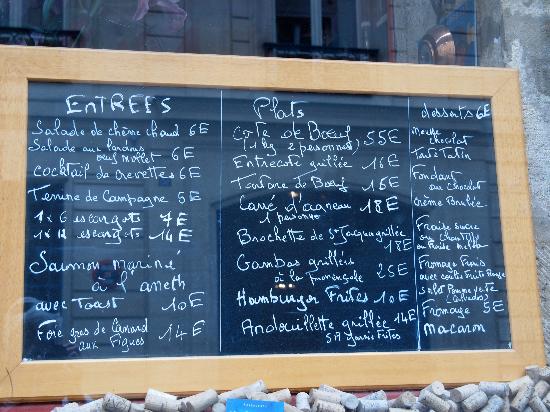 EnTREES
Salade de chèvre chaud 6E
Salade aux lardons
oeuf mollet 6E
cocktail de crevettes 6E
Terrine de Campagne 5E
1 x 6 escargots 7E
1 x 12 escargots 14E
Saumon mariné
à l'aneth
avec Toast 10E
Foie gras de Canard 14E
aux Figues
Plats
COTE de Boeuf 55E
(1 kg 2 personnes)
Entrecote grillée 16E
Tartare de Boeuf 15E
Carré d'agneau 18E
1 personne
Brochette de St Jacques grillée
18E
Gambas grillées
à la provençale 25E
Hamburger Frites 10E
Andouillette grillée 14E
Frites
desserts 6E
Mousse
chocolat
Tarte Tatin
Fondant
au chocolat
crème Brulée
Fraise sucre
ou chantilly
Fromage
avec
sorbet Pomme verte
(calvados)
Fromage 5E
Macaron